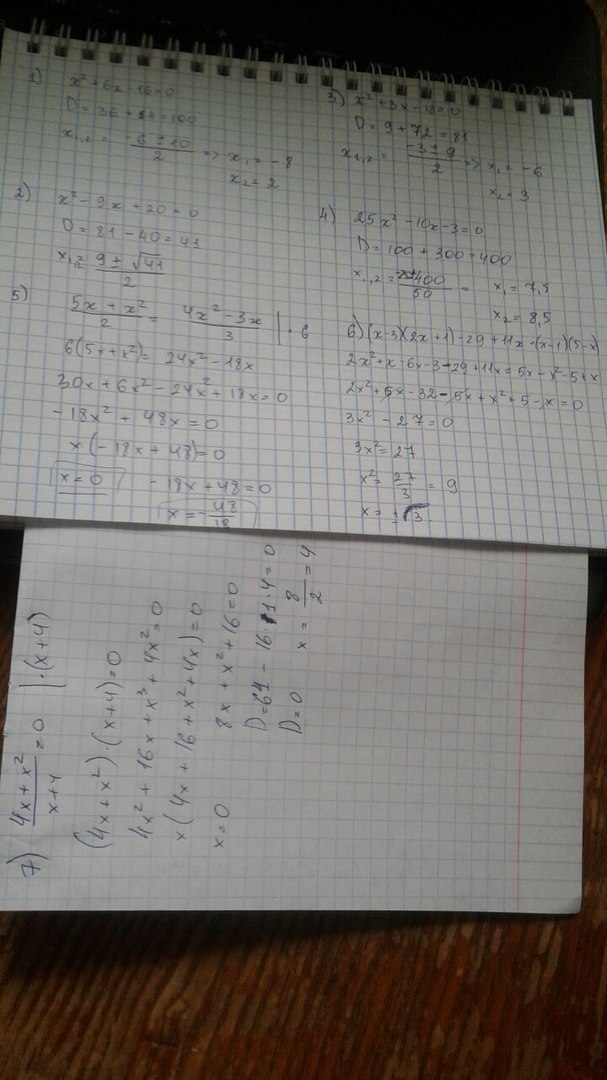 1) x² + 6x - 16 = 0
D = 36 + 64 = 100
x₁,₂ = (-6 ± 10)/2 => x₁ = -8
x₂ = 2
2) x² - 9x + 20 = 0
D = 81 - 40 = 41
x₁,₂ = (9 ± √41)/2
3) x² + 3x - 18 = 0
D = 9 + 72 = 81
x₁,₂ = (-3 ± 9)/2 => x₁ = -6
x₂ = 3
4) 25x² - 10x - 3 = 0
D = 100 + 300 = 400
400/50 = x₁ = 7,5
x₂ = 8,5
5) (5x + x²)/2 = (4x² - 3x)/3 | · 6
6(5x + x²) = 24x² - 18x
30x + 6x² - 24x² + 18x = 0
-18x² + 48x = 0
x(-18x + 48) = 0
x = 0 -18x + 48 = 0
x = -48/18
6) (x-3)(2x+1) - 29 + 11x = (x-1)(5-x)
2x² + x - 6x - 3 - 29 + 11x = 5x - x² - 5 + x
2x² + 6x - 32 - 5x + x² + 5 - x = 0
3x² - 27 = 0
3x² = 27
x² = 27/3 = 9
x = ± 3
7) (4x + x²)/(x+4) = 0 | · (x+4)
(4x + x²) · (x+4) = 0
4x² + 16x + x³ + 4x² = 0
x(4x + 16 + x² + 4x) = 0
x = 0 8x + x² + 16 = 0
D = 64 - 16 · 1 · 4 = 0
D = 0 x = 8/2 = 4